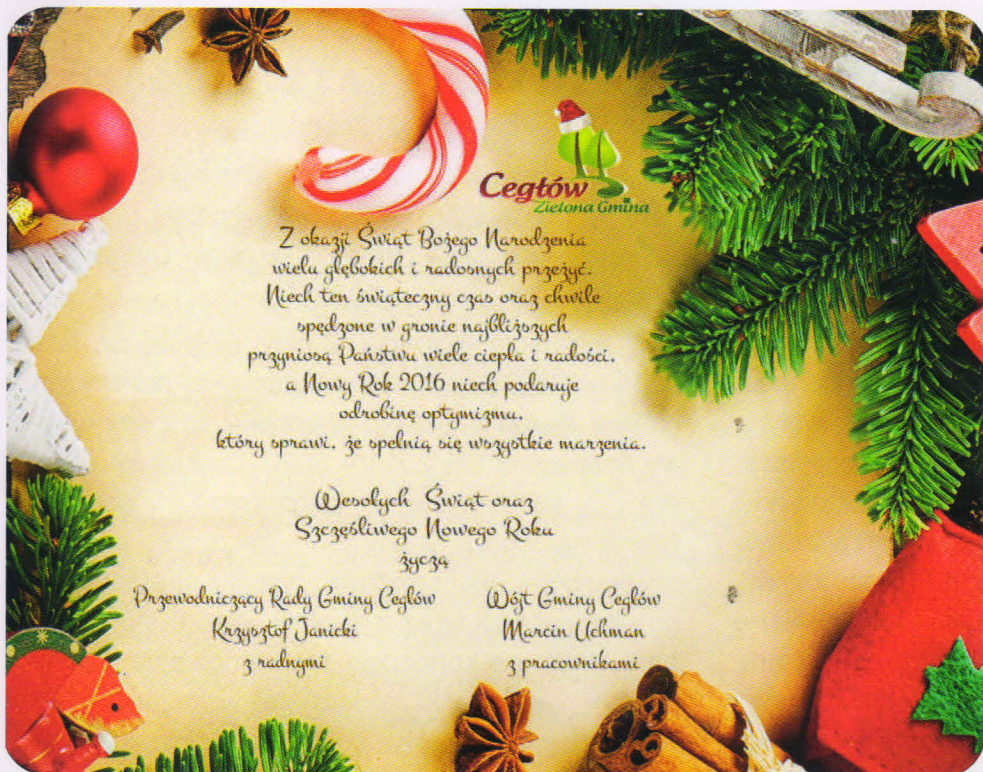 Cegłów
Zielona Gmina
Z okazji Świąt Bożego Narodzenia
wielu głębokich i radosnych przeżyć.
Niech ten świąteczny czas oraz chwile
spędzone w gronie najbliższych
przyniosą Państwu wiele ciepła i radości,
a Nowy Rok 2016 niech podaruje
odrobinę optymizmu,
który sprawi, że spełnią się wszystkie marzenia.
Wesołych Świąt oraz
Szczęśliwego Nowego Roku
życzą
Przewodniczący Rady Gminy Cegłów
Krzysztof Janicki
z radnymi
Wójt Gminy Cegłów
Marcin Uchman
z pracownikami